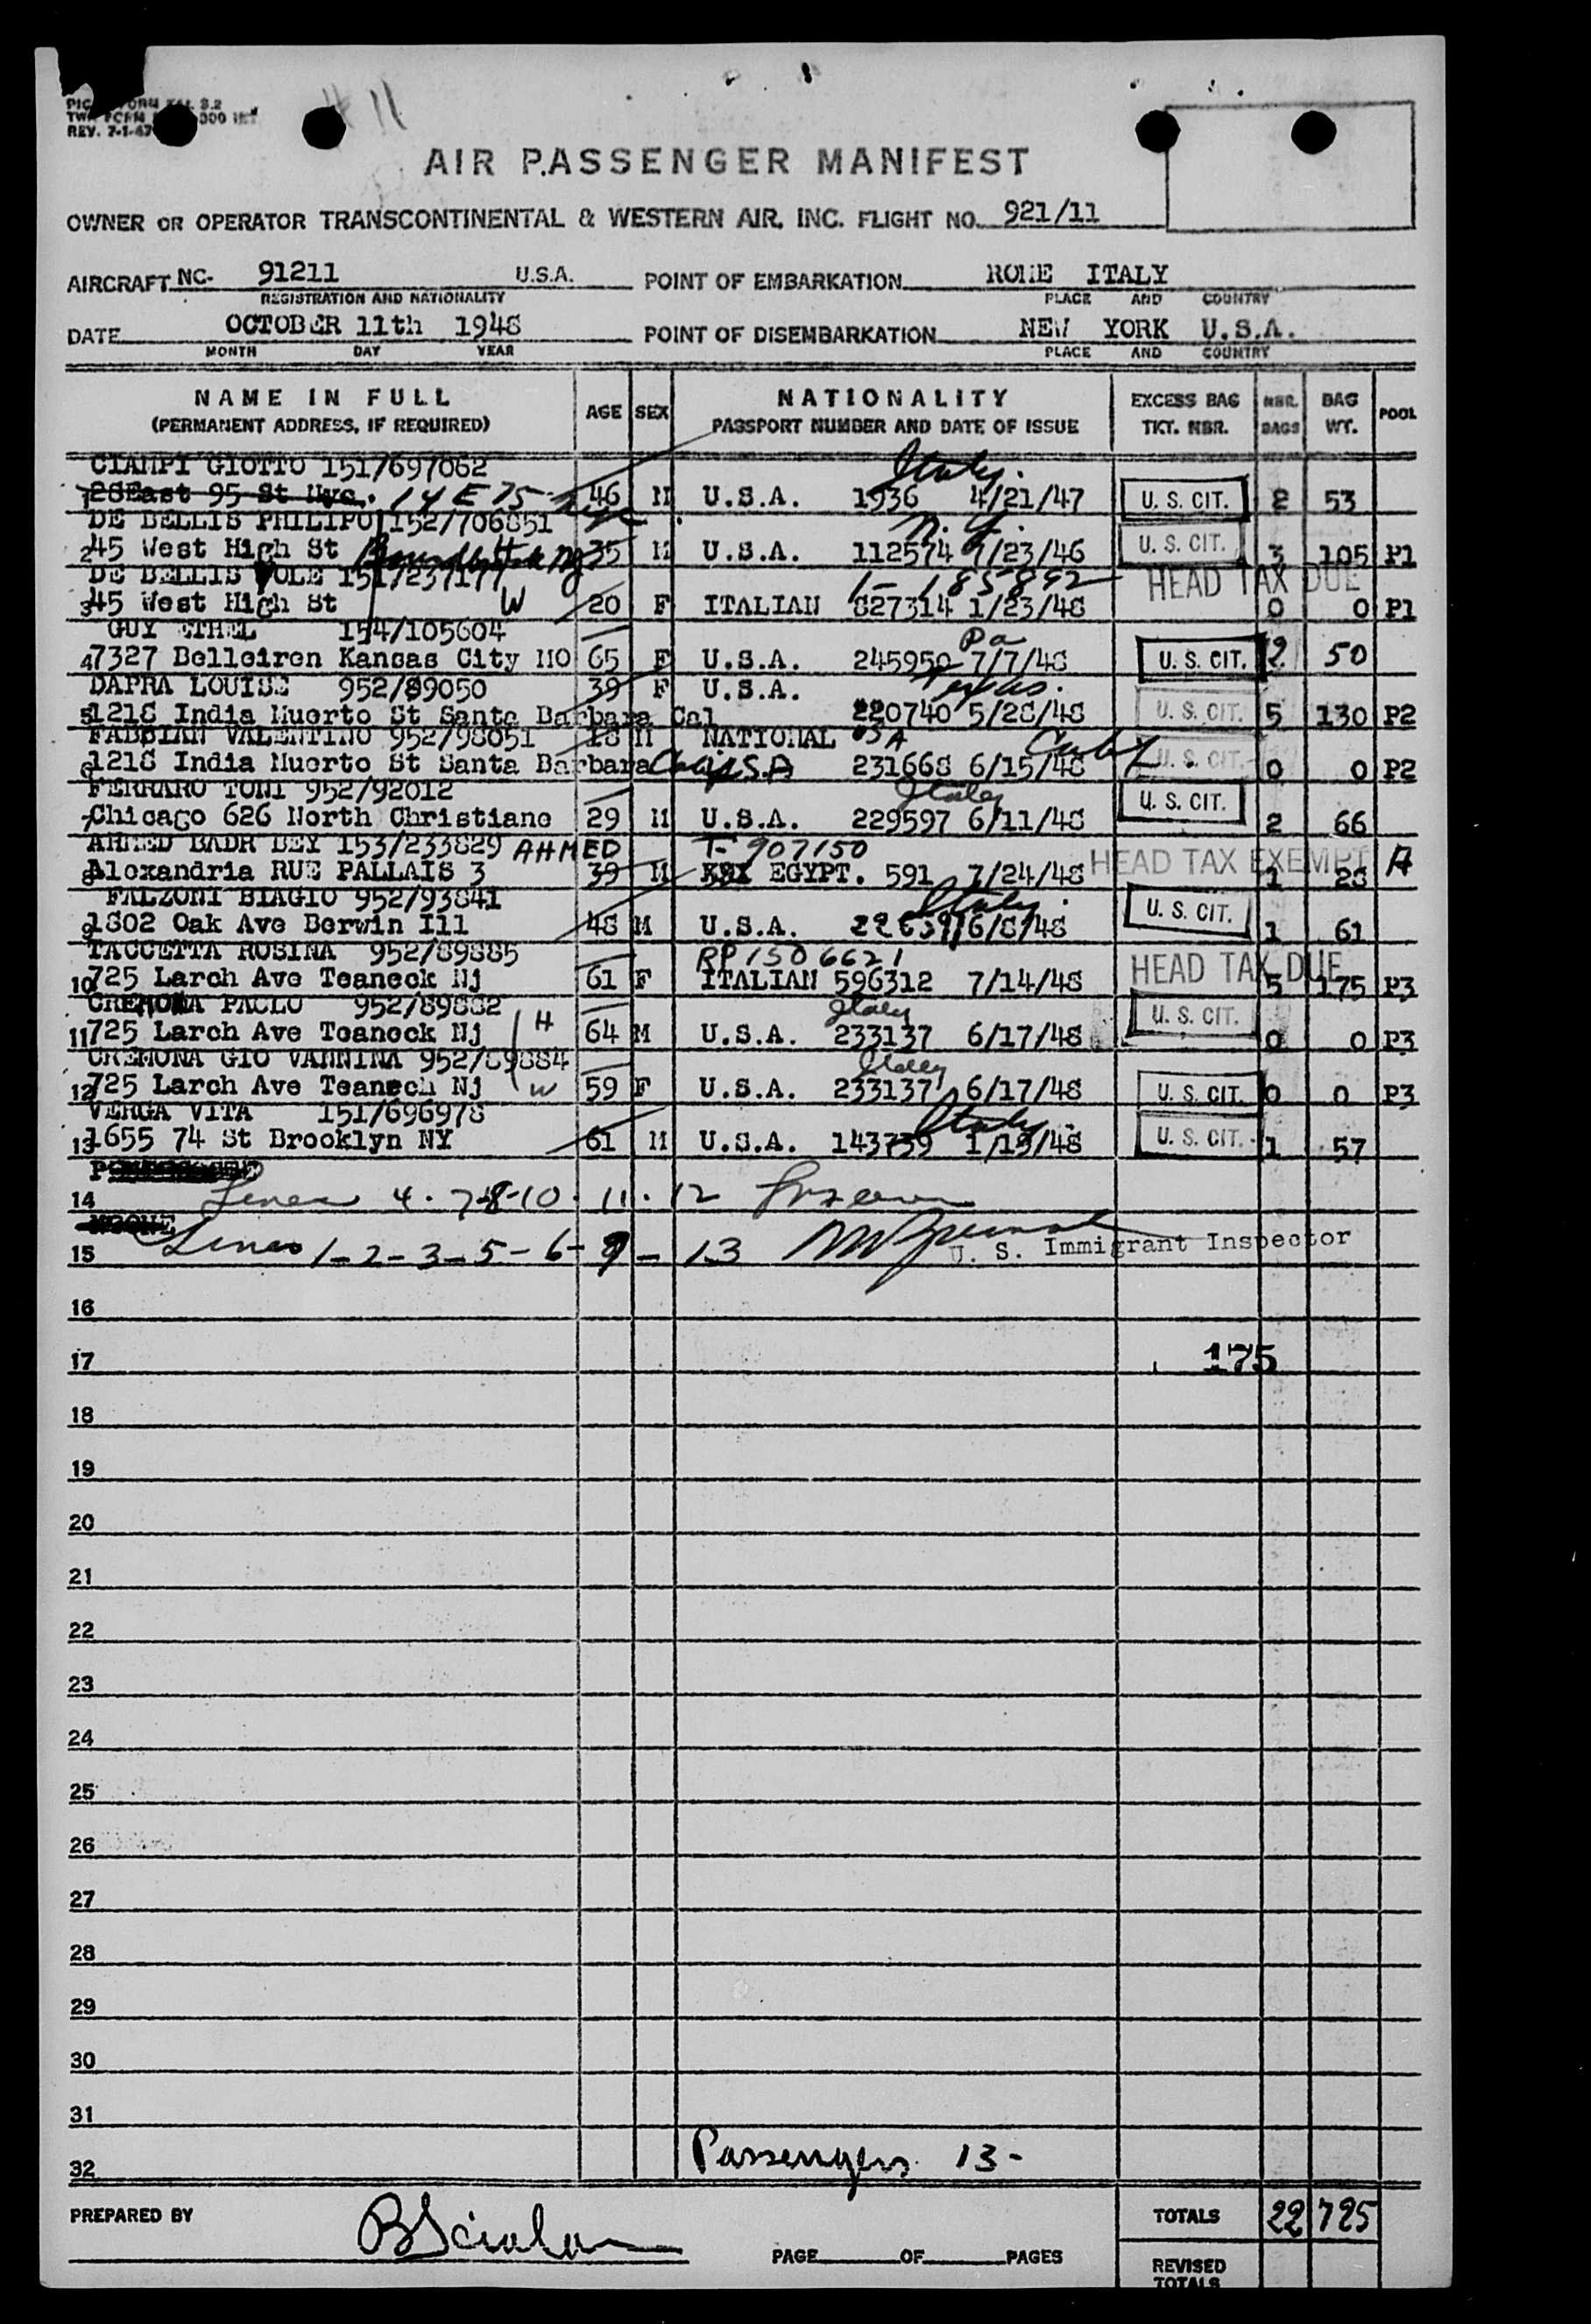 # 11
REV. 7-1-47
AIR PASSENGER MANIFEST
OWNER OR OPERATOR TRANSCONTINENTAL & WESTERN AIR, INC. FLIGHT NO. 921/11
AIRCRAFT NC- 91211 U.S.A. POINT OF EMBARKATION ROME ITALY
REGISTRATION AND NATIONALITY PLACE AND COUNTRY
DATE OCTOBER 11th 1948 POINT OF DISEMBARKATION NEW YORK U.S.A.
MONTH DAY YEAR PLACE AND COUNTRY
NAME IN FULL AGE SEX NATIONALITY EXCESS BAG NBR. BAG POOL
(PERMANENT ADDRESS, IF REQUIRED) PASSPORT NUMBER AND DATE OF ISSUE TKT. NBR. BAGS WT.
CIAMPI GIOTTO 151/697062 Italy.
1 28East 95 St Nyc. 14 E 75 46 M U.S.A. 1936 4/21/47 U. S. CIT. 2 53
DE BELLIS PHILIPO 152/706851 N. Y.
2 45 West High St 35 M U.S.A. 112574 /23/46 U. S. CIT. 3 105 P1
DE BELLIS YOLE 151/237177 1- 185892 HEAD TAX DUE
3 45 West High St W 20 F ITALIAN 827314 1/23/48 0 0 P1
GUY ETHEL 154/105604 Pa
4 7327 Belleiren Kansas City MO 65 F U.S.A. 245950 7/7/48 U. S. CIT. 2 50
DAPRA LOUISE 952/89050 39 F U.S.A. Texas.
5 1218 India Muerto St Santa Barbara Cal 220740 5/28/48 U. S. CIT. 5 130 P2
FABBIAN VALENTINO 952/98051 18 M NATIONAL USA
6 1218 India Muerto St Santa Barbara Cal U.S.A 231668 6/15/48 U. S. CIT. 0 0 P2
FERRARO TONI 952/92012 Italy
7 Chicago 626 North Christiane 29 M U.S.A. 229597 6/11/48 U. S. CIT. 2 66
AHMED BADR BEY 153/233829 AHMED T- 907150 HEAD TAX EXEMPT A
8 Alexandria RUE PALLAIS 3 39 M EGYPT. 591 7/24/48 1 28
FALZONI BIAGIO 952/93841 Italy.
9 1802 Oak Ave Berwin Ill 48 M U.S.A. 6/8/48 U. S. CIT. 1 61
TACCETTA ROSINA 952/89885 RP 1506621 HEAD TAX DUE
10 725 Larch Ave Teaneck Nj 61 F ITALIAN 596312 7/14/48 5 175 P3
CREMONA PAOLO 952/89882 Italy
11 725 Larch Ave Teaneck Nj H 64 M U.S.A. 233137 6/17/48 U. S. CIT. 0 0 P3
CREMONA GIO VANNINA 952/89884 Italy
12 725 Larch Ave Teanech Nj W 59 F U.S.A. 233137 6/17/48 U. S. CIT. 0 0 P3
VERGA VITA 151/696978 Italy
13 1655 74 St Brooklyn NY 61 M U.S.A. 143739 1/15/48 U. S. CIT. 1 57
14 Lines 4 - 7-8-10 - 11 - 12
15 Lines 1-2-3-5-6-9-13 U. S. Immigrant Inspector
16
17 175
18
19
20
21
22
23
24
25
26
27
28
29
30
31
32 Passengers 13-
PREPARED BY TOTALS 22 725
PAGE OF PAGES REVISED TOTALS